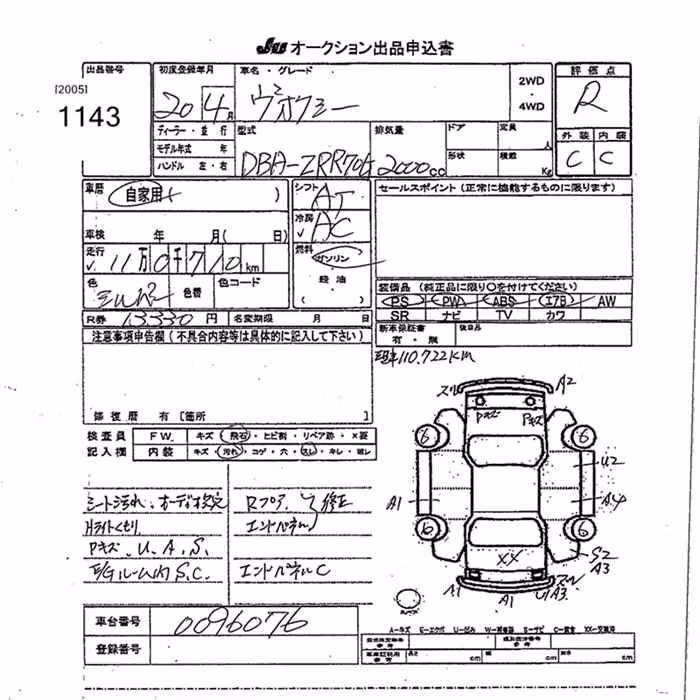 JU オークション出品申込書
出品番号
[2005]
1143
初度登録年月
20 年 4 月
車名・グレード
ヴォクシー
2WD
・
4WD
評価点
R
外装 内装
C C
ディーラー・並行
モデル年式 年
ハンドル 左・右
型式
DBA-ZRR70G
排気量
2000cc
ドア 定員 人
形状 積載 Kg
車歴
自家用
車検 年 月( 日)
走行
11万0千710km
色
シルバー
色替
色コード
シフト
AT
冷房
AC
燃料
ガソリン
・
軽油
( )
セールスポイント(正常に機能するものに限ります)
装備品(純正品に限り○を付けてください)
PS PW ABS エアB AW
SR ナビ TV カワ
R券 13,330円 名変期限 月 日
新車保証書
有・無
後日品
注意事項申告欄(不具合内容等は具体的に記入して下さい)
修復歴 有 [箇所 ]
110,722KM
検査員
記入欄
F W. キズ・飛石・ヒビ割・リペア跡・×要
内装 キズ・汚れ・コゲ・穴・スレ・キレ・ヨレ
シート汚れ、オーディオ欠
Hライトくもり
Pキズ、U.A.S.
E/GルームS.C.
Rフロア 修正
エンドパネル
エンドパネルC
A2
Pキズ
Pキズ
6
6
U2
A1
A4
6
6
XX
S2
A3
A1
A1
A3
A-キズ E-エクボ U-凹み W-補修跡 S-サビ C-腐食 XX-交換済
車台番号
0096076
登録番号
長さ cm
幅 cm
高さ cm